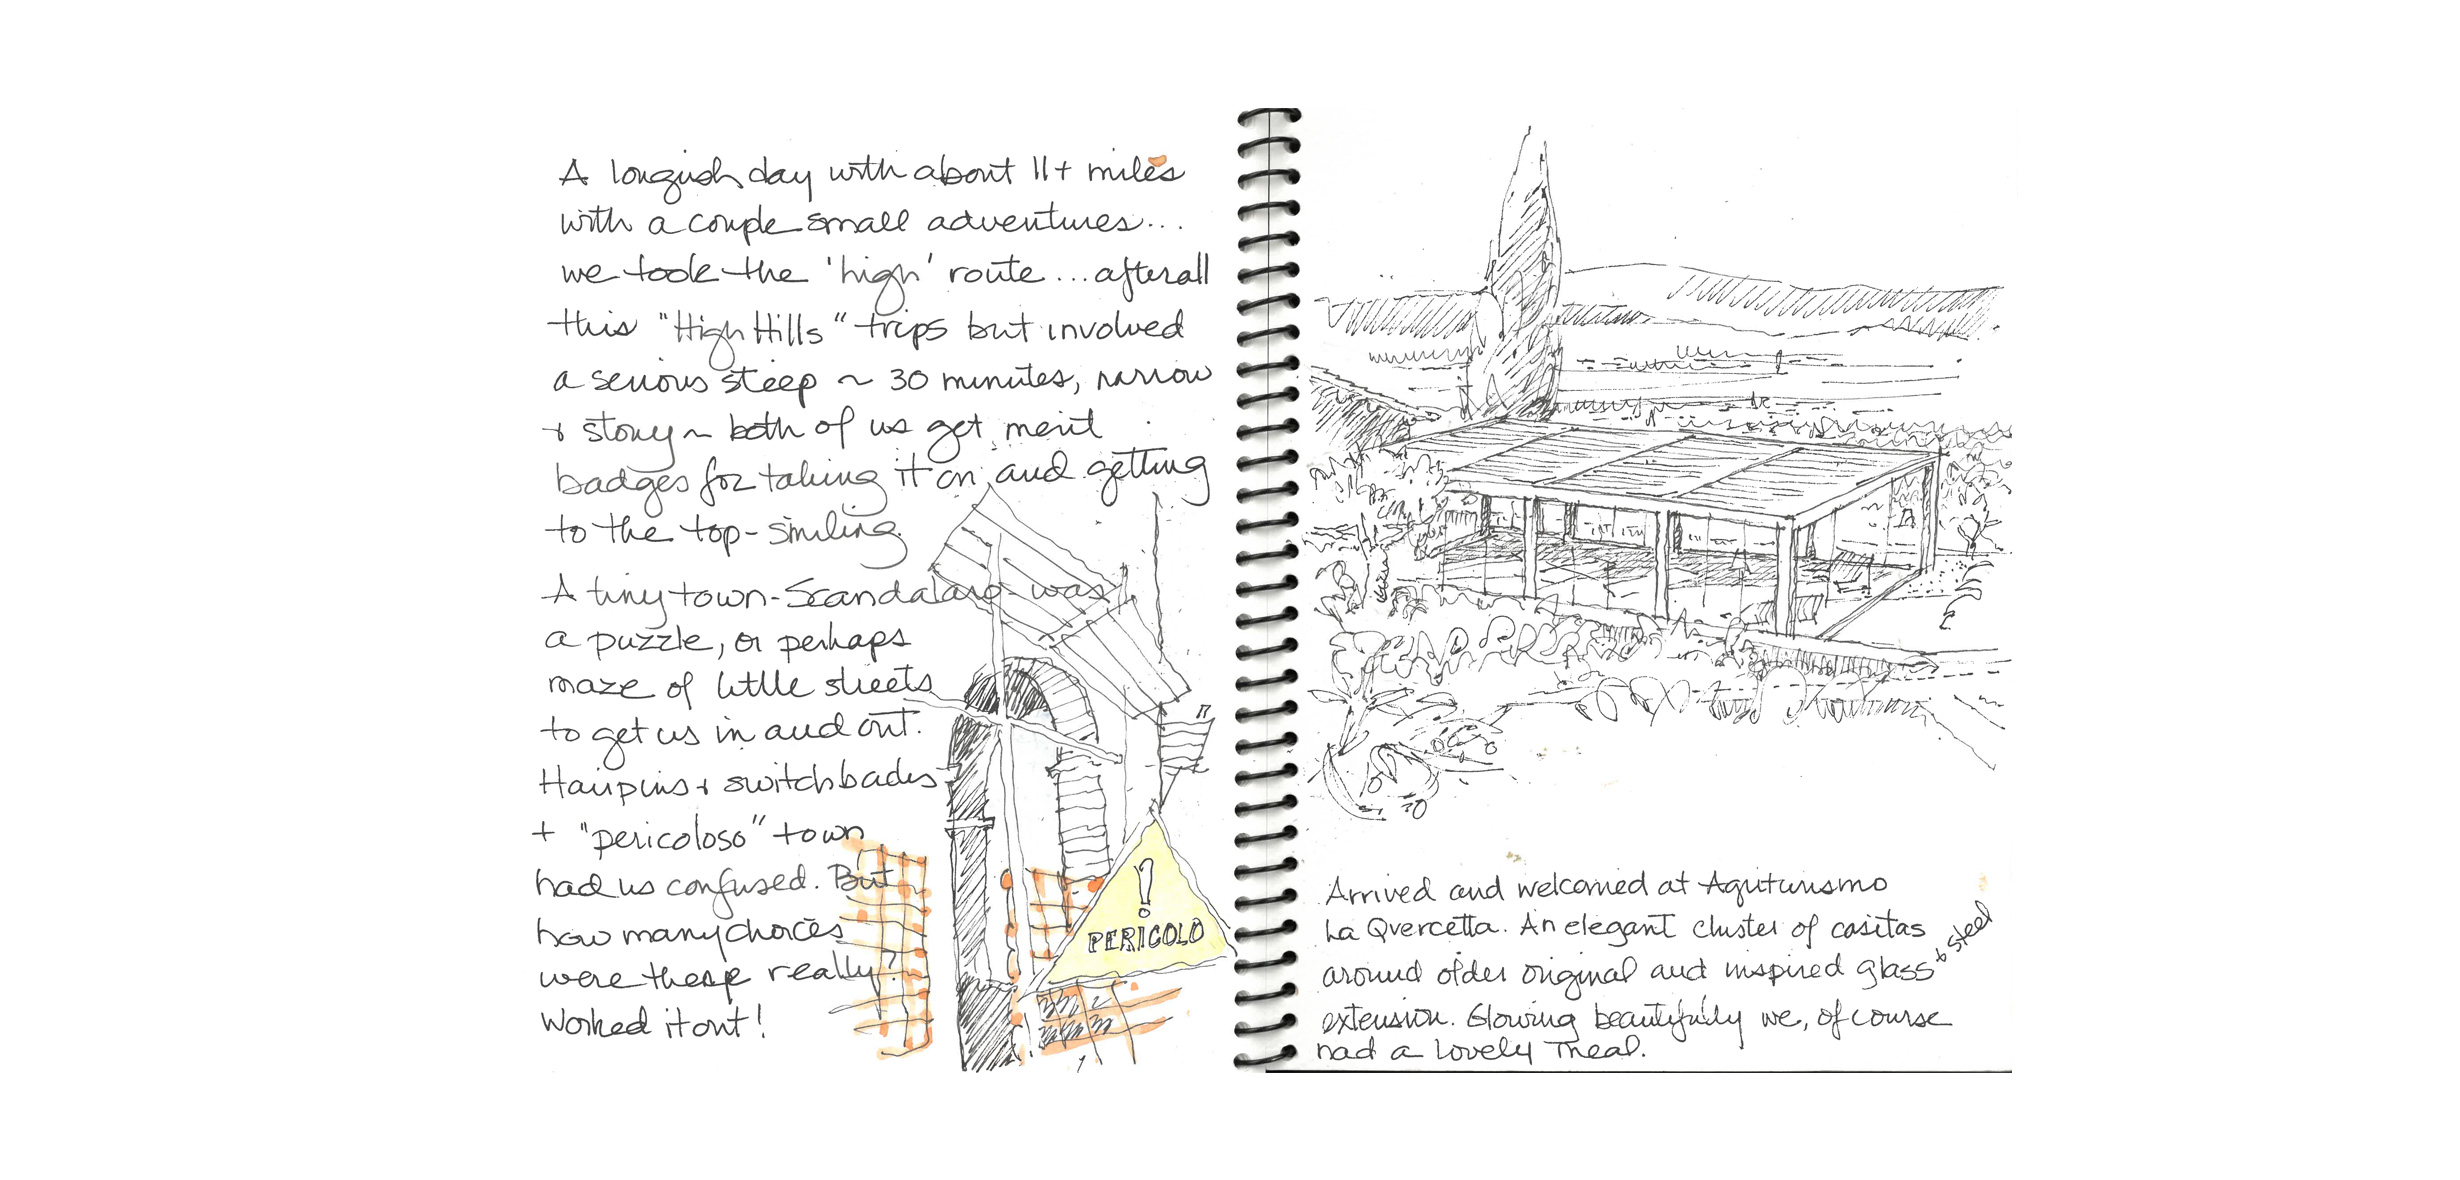 A longish day with about 11+ miles
with a couple small adventures...
we took the 'high' route...afterall
this "High Hills" trips but involved
a serious steep ~ 30 minutes, narrow
+ stony ~ both of us get merit
badges for taking it on and getting
to the top - smiling.
A tiny town - Scandalaro - was
a puzzle, or perhaps
maze of little streets
to get us in and out.
Hairpins + switchbacks
+ "pericoloso" town
had us confused. But
how many choices
were there really?
Worked it out!
!
PERICOLO
Arrived and welcomed at Agriturismo
La Quercetta. An elegant cluster of casitas
around older original and inspired glass + steel
extension. Glowing beautifully we, of course
had a lovely meal.